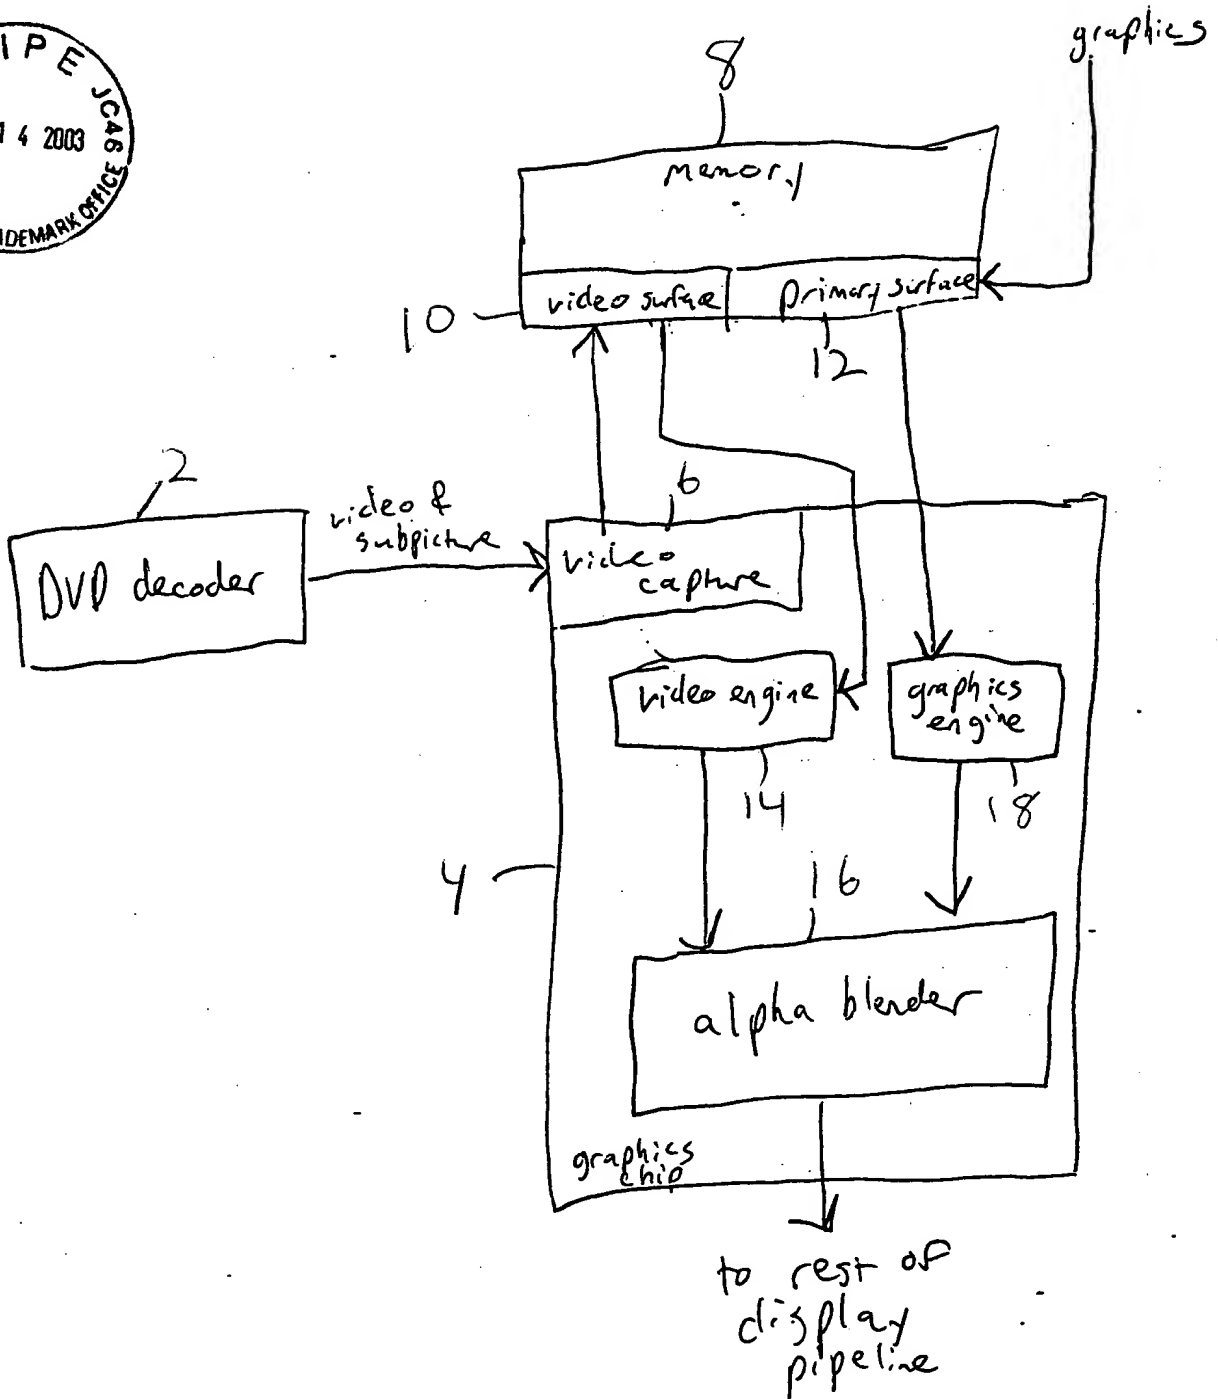 IPE JC46
4 2003
DEMARK OFFICE
graphics
8
memory
video surface
primary surface
10
12
2
video &
subpicture
6
DVD decoder
video
capture
video engine
graphics
engine
14
18
4
16
alpha blender
graphics
chip
to rest of
display
pipeline